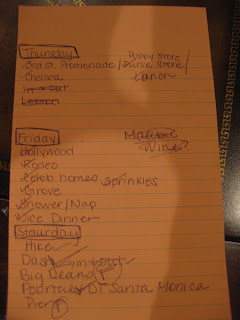 Thursday
Puppy Store
3rd St. Promenade/Purse Store/
Chelsea
Lunch
In-n-out
Friday
Malibu
Hollywood
Wine
Rodeo
Celeb homes
Sprinkles
Grove
Shower/Nap
Nice Dinner
Staurday
Hike
in-n-out
Big Deans
DT Santa Monica
Pier